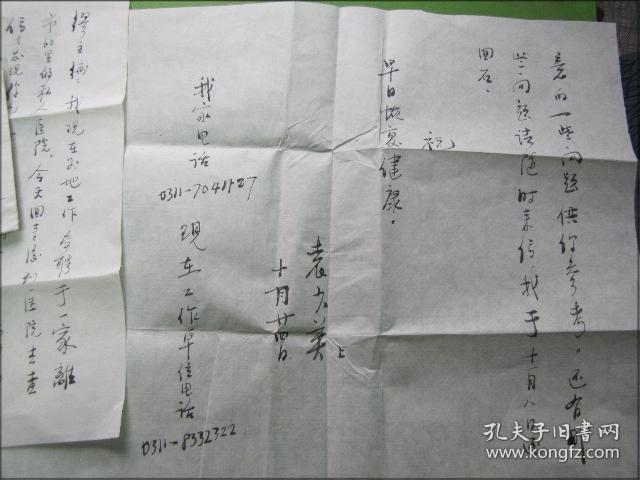 意的一些问题供你参考。还有那
些问题请随时来信，我于十一月八日
回石。
祝
早日恢复健康。
袁少英上
十月廿四日
我家电话
0311-7041427
现在工作单位电话
0311-8332322
我现在外地工作 应聘于一家离
市的私人医院，今天回去医院去查
孔夫子旧书网
kongfz.com